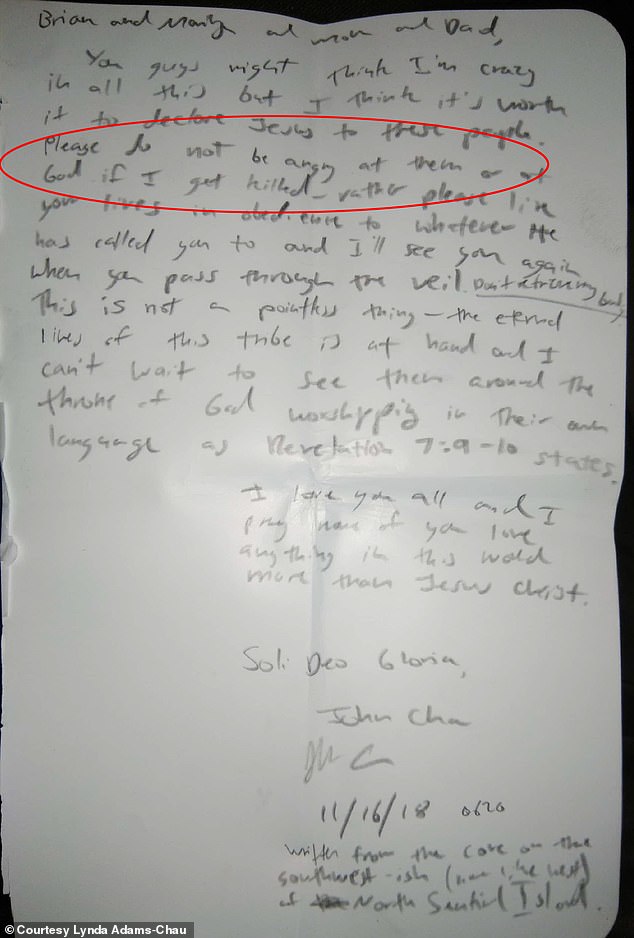 Brian and Marilyn and mom and Dad,
You guys might think I'm crazy
in all this but I think it's worth
it to declare Jesus to these people.
Please do not be angry at them or at
God if I get killed - rather please live
your lives in obedience to whatever He
has called you to and I'll see you again
when you pass through the veil.
This is not a pointless thing - the eternal
lives of this tribe is at hand and I
can't wait to see them around the
throne of God worshipping in their own
language as Revelation 7:9-10 states.
I love you all and I
pray none of you love
anything in this world
more than Jesus Christ.
Soli Deo Gloria,
John Chau
11/16/18 0620
Written from the cove on the
southwest-ish (more like west)
of North Sentinel Island.
©Courtesy Lynda Adams-Chau